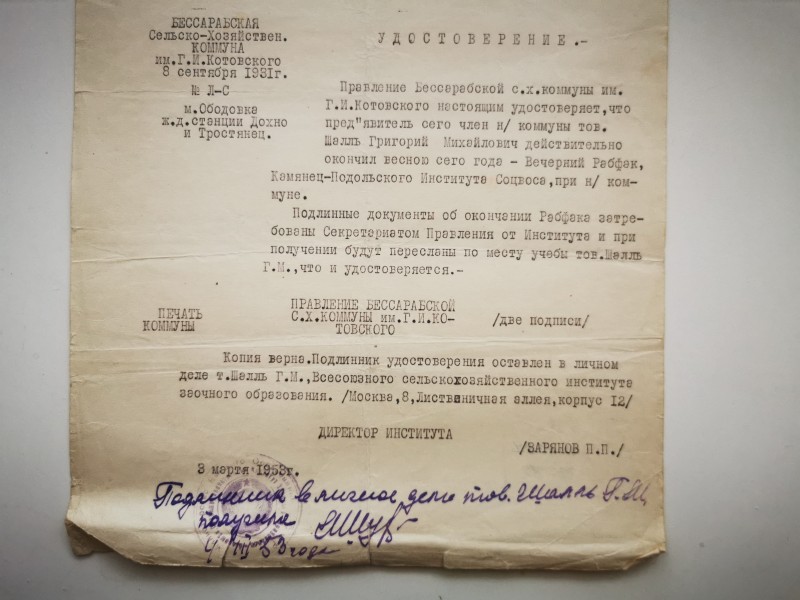 БЕССАРАБСКАЯ
Сельско-Хозяйствен.
КОММУНА
им.Г.И.Котовского
8 сентября 1931г.
№ Л-С
м.Ободовка
ж.д.станции Дохно
и Тростянец.
УДОСТОВЕРЕНИЕ.-
Правление Бессарабской с.х.коммуны им.
Г.И.Котовского настоящим удостоверяет,что
пред"явитель сего член н/ коммуны тов.
Шалль Григорий Михайлович действительно
окончил весною сего года - Вечерний Рабфак,
Камянец-Подольского Института Соцвоса,при н/ ком-
муне.
Подлинные документы об окончании Рабфака затре-
бованы Секретариатом Правления от Института и при
получении будут пересланы по месту учебы тов.Шалль
Г.М.,что и удостоверяется.-
ПЕЧАТЬ
КОММУНЫ
ПРАВЛЕНИЕ БЕССАРАБСКОЙ
С.Х.КОММУНЫ им.Г.И.КО-
ТОВСКОГО
/две подписи/
Копия верна.Подлинник удостоверения оставлен в личном
деле т.Шалль Г.М.,Всесоюзного сельскохозяйственного института
заочного образования. /Москва,8,Лиственичная аллея,корпус 12/
ДИРЕКТОР ИНСТИТУТА
/ЗАРЯНОВ П.П./
3 марта 1953г.
Подлинник в личное дело тов. Шалль Г.М.
получила
4/III 53 года